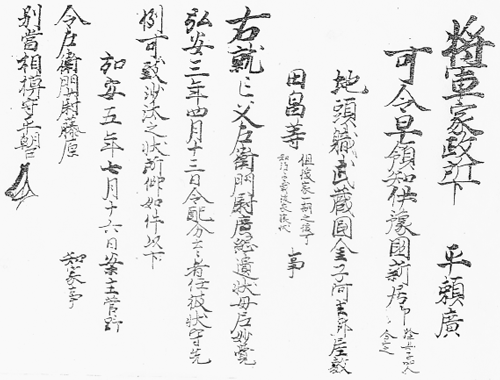 將軍家政所下 平頼廣
可令早領知伊豫國新居
地頭職武蔵國金子 屋敷
田畠等 但後家一期之後 事
右就亡父左衛門尉廣 遺状母尼妙覺
弘安三年四月十三日令配分云々者任彼状守先
例可致沙汰之状所仰如件以下
弘安五年七月十六日案主菅野
令左衛門尉藤原 知家事
別當相模守平朝臣